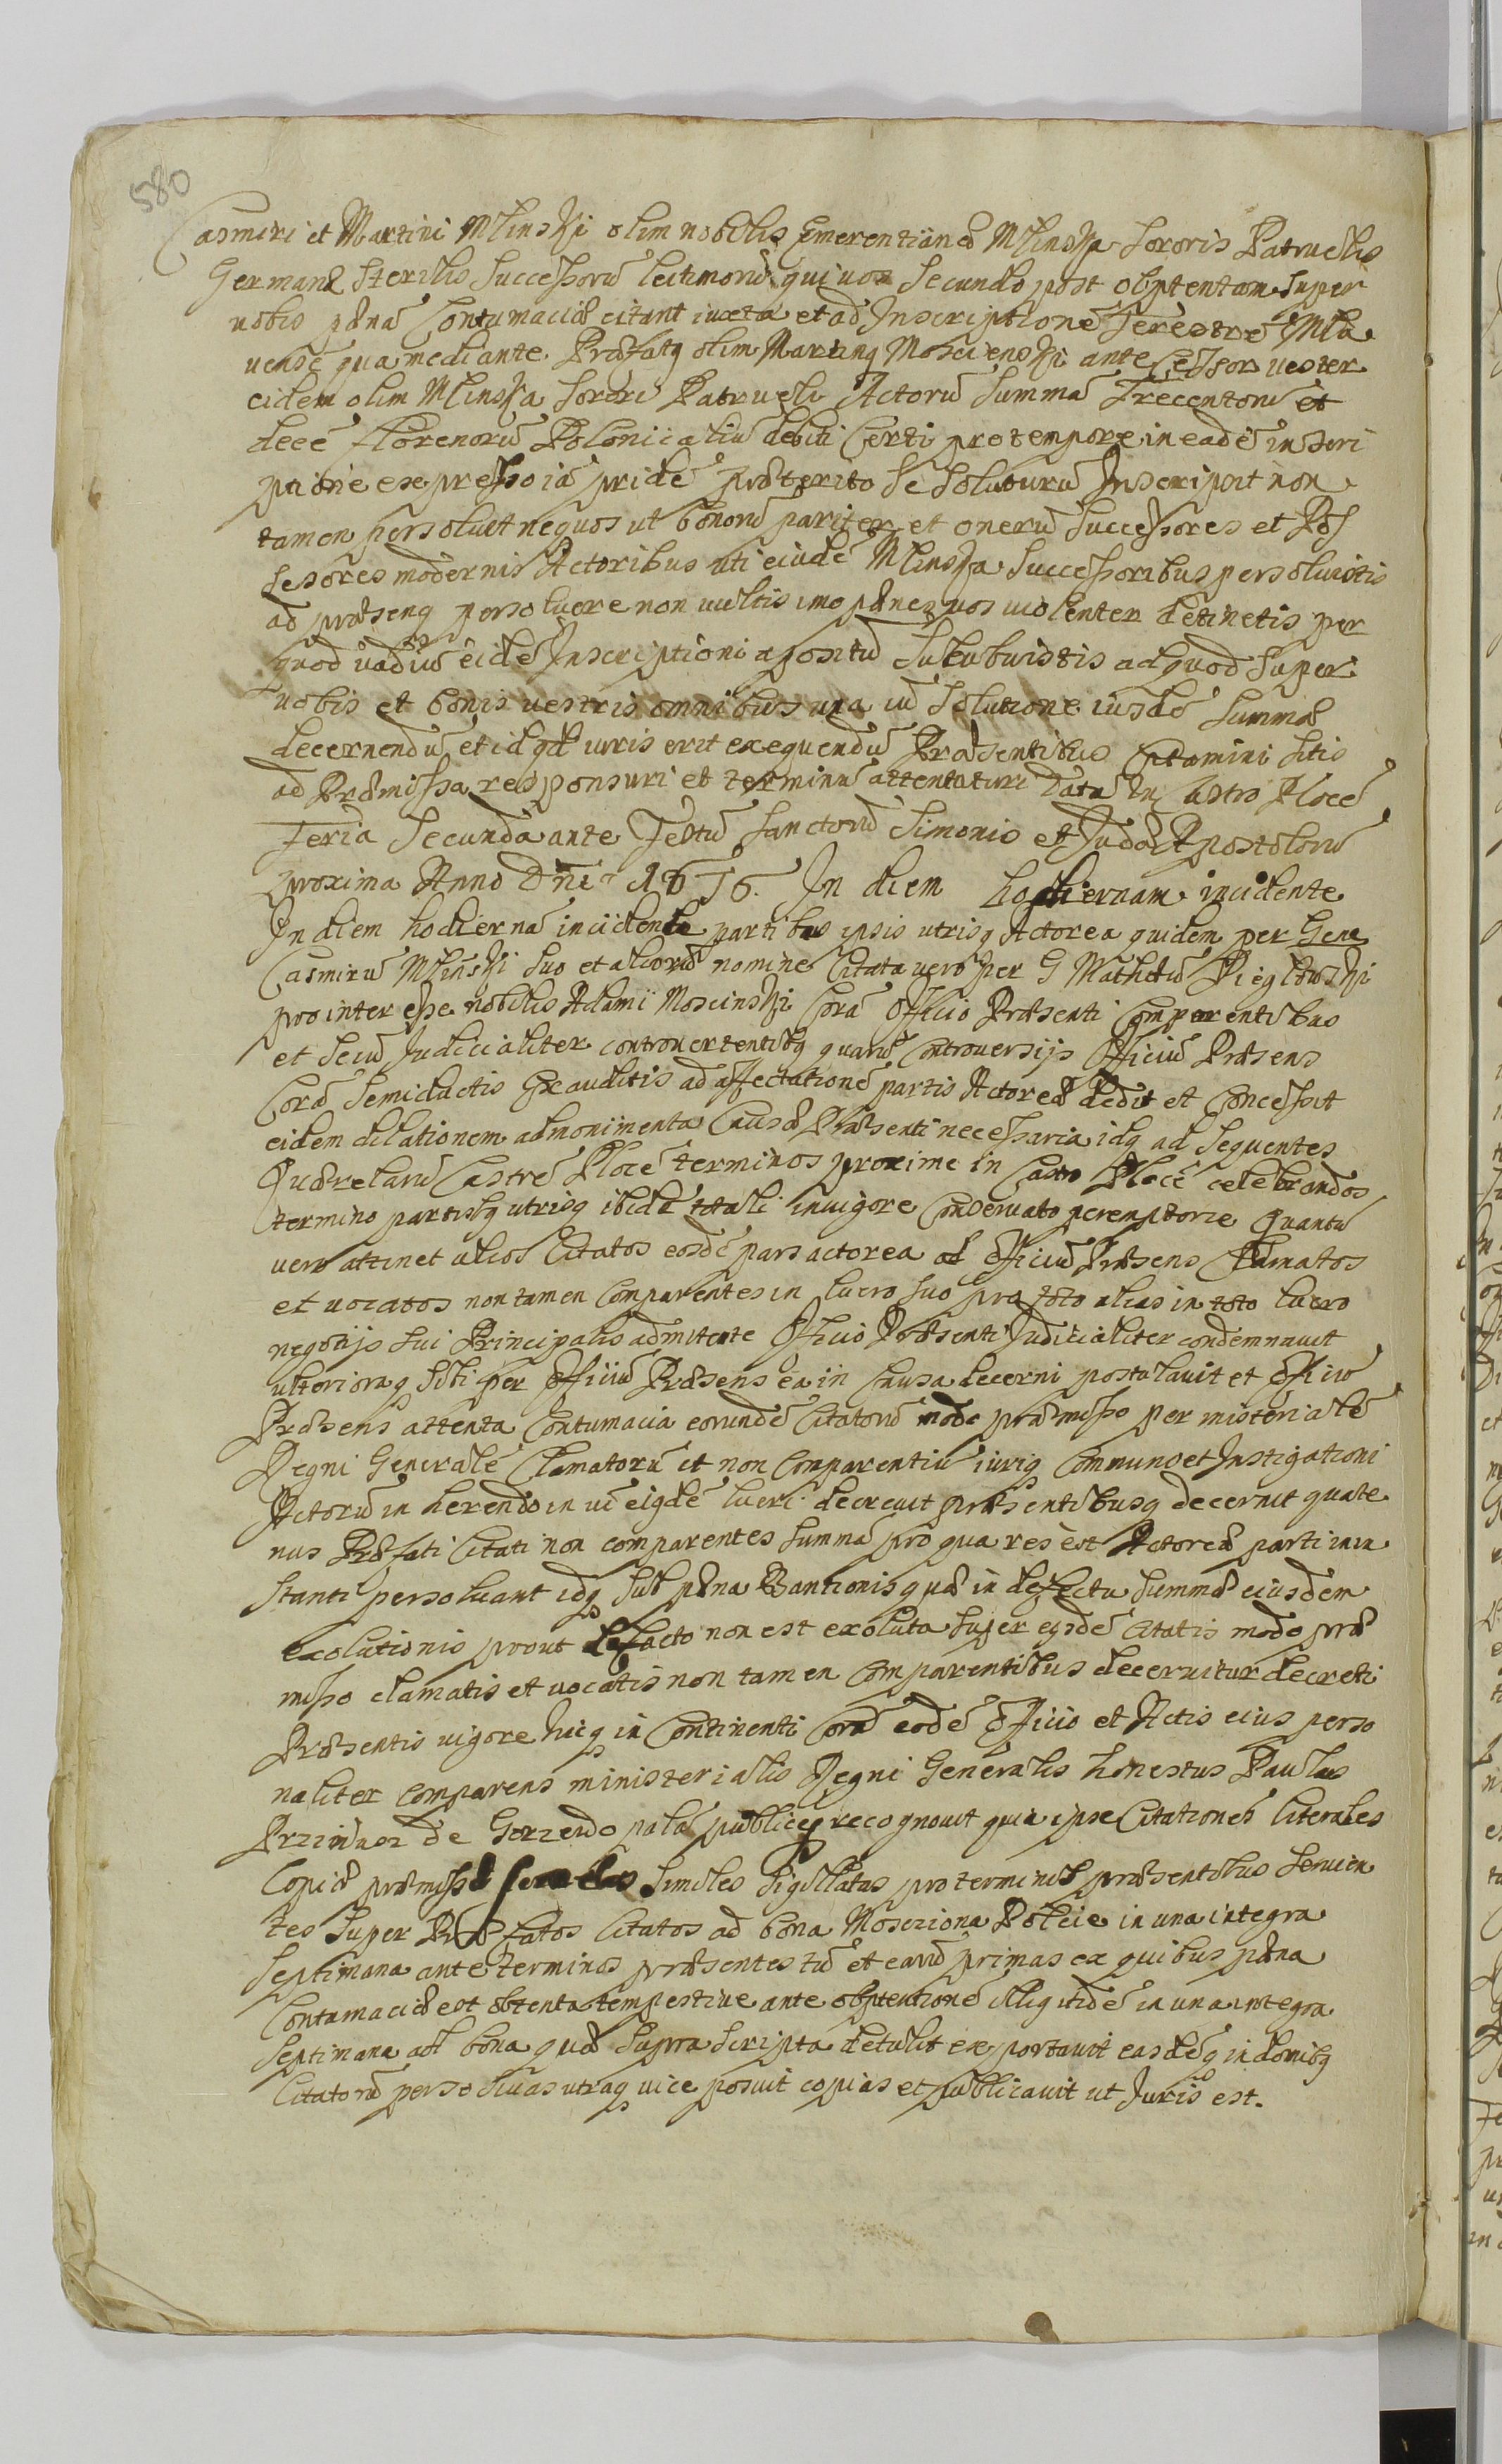 580
Casmiri et Martini Mlinski olim nobilis Emerentiianæ Mlinska Sororis Patruelis
Germanæ Sterilis Successorũ lectimorũ qui vos Secundo post obptentam super
vobis pænã Contumaciæ citant iuxta et ad Inscriptionẽ Terestrẽ Mla
uensẽ qua mediante Præfatq olim Martinq Moscienski ante Cessor vester
eidem olim Mlinska Sorori Patrueli Actorũ Summã Trecentorũ et
decẽ florenorũ Polonicaliũ debiti Certi pro tempore in eadẽ inscri
ptione expresso iã pridẽ præterito Se Soluturũ Inscripsit non
tamen persoluit nequos ut bonorũ pariter et onerũ Successores et Pos
sesores modernis Actoribus uti eiudẽ Mlinska Successoribus persoluistis
ad præsenq persoluere non uultis imo pænez vos uiolenter detinetis per
quod uadiũ eidẽ Inscriptioni apositũ Sukubuistis ad quod Super
vobis et bonis uestris omnibus una cũ Solutione iusdẽ Summæ
decernendũ et id qd iuris erit exequendũ Præsentibus Citamini sitis
ad Præmissa responsuri et terminũ attentaturi Datũ in Castro Plocẽ
Feria Secunda ante Festũ Sanctorũ Simonis et Judæ Apostolorũ
proxima Anno Dñi 1676. In diem hodiernam incidente
In diem hodiernã incidente partibus ipsis utrisq Actorea quidem per Gene
Casmirũ Mlinski Suo et aliorũ nomine Citata vero per G Mathiã Pieglowski
pro interesse nobilis Adami Moscinski Corã Officio Præsenti Comparentibus
et Secũ Judicialiter controuertentibq quarũ Controuersijs Officiũ Præsens
Corã Semidictis Exauditis ad affectationẽ partis Actoreæ dedit et Concessit
eidem dilationem ad monimenta Causæ Præsenti necessaria idq ad Sequentes
Quærelarũ Castrẽ Plocẽ terminos proxime in Castro Plocẽ celebrandos
termino partisbq utrisq ibidẽ totali in uigore Conseruato peremptorie Quantũ
vero attinet alios Citatos eosdẽ pars actorea ad Officiũ Præsens Clamatos
et uocatos non tamen Comparentes in lucro suo pro toto alias in toto lucro
negotijs sui Principalis admitente Officio Præsenti Judicialiter condemnauit
ulterioraq Sibi per Officiũ Præsens ea in Causa decerni postulauit et Officiũ
Præsens attenta Contumacia eorundẽ Citatorũ modo præmisso per misterialẽ
Regni Generalẽ Clamatorũ et non Comparentiũ iuriq Communo et Instigationi
Actorũ in herendo in ui eiqdẽ lucri decreuit præsentibusq decernit quate
nus Præfati Citati non comparentes Summã pro qua res est Actoreæ parti inn
stanti persoluant idq Sub pæna Bannionis quæ in defectu Summæ eiusdem
exolutionis prout defacto non est exoluta Super eqsdẽ Citatis modo præ
misso clamatis et uocatis non tamen Comparentibus decernitur decreti
Præsentis uigore hicq in Continenti Corã eodẽ Officio et Actis eius perso
naliter comparens ministerialis Regni Generalis honestus Paulus
de Gorzendo palã publiceq recognouit quia ipse Citationes literales
Copiæ præmissæ Similes Sigillatas pro terminis præsentibus Seruien
tes Super Præfatos Citatos ad bona Mosciona Poleie in una integra
Septimana ante terminos præsentes tũ et earũ primas ex quibus pæna
Contumaciæ est obtenta tempestiue ante obptentionẽ illiq itidẽ in una integra
Septimana ad bona quæ Supra Scripta detulit exportauit easdẽq in domibq
Citatorũ persoluas utraq uice posuit copias et publicauit ut Juris est.